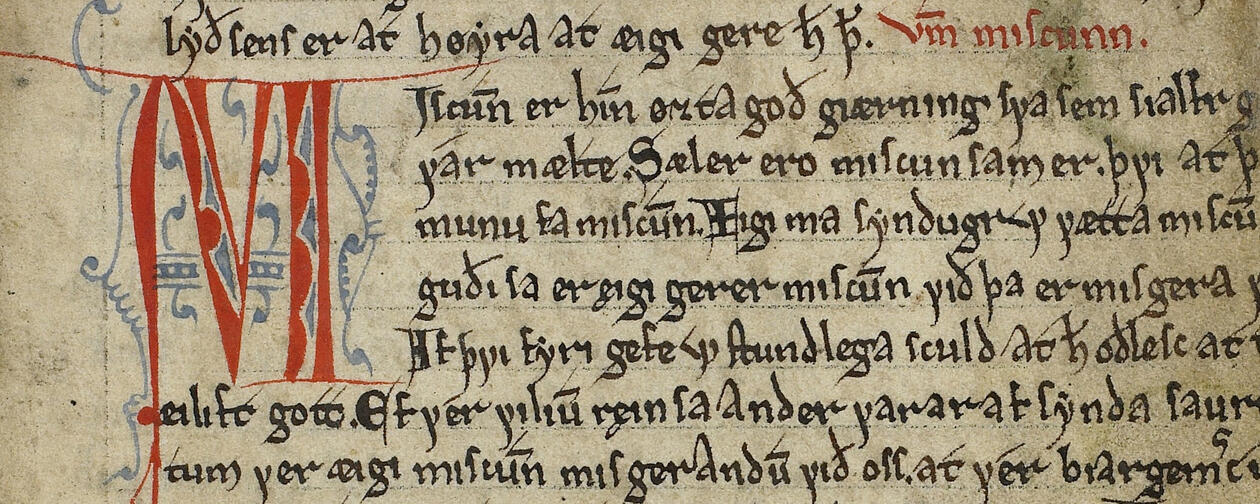 lyð sens er at høyra at æigi gere h̄ þ̄. Vm̄ miscunn.
MIscun̄ er hin̄ ørta goð giærning sva sem sialfr
var mælte. Sæler ero miscunsamer. þvi at
munu fa miscun̄. Eigi ma syndugr vætta miscu̅
guði sa er æigi gerer miscun̄ við þa er misgera
Af þvi fyri gefe stundlega sculd at h̄ oðlesc at
eilift gott. Ef ver vilium̄ ręinsa ander varar af synda saur
tum ver æigi miscun̄ misgerandū við oss. at ver biargem̄c